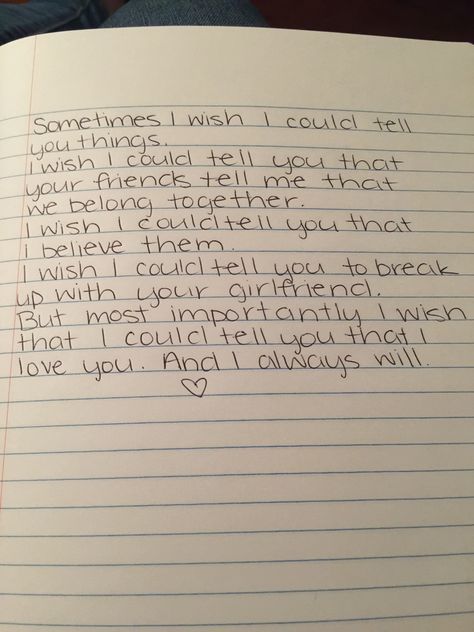 Sometimes I wish I could tell
you things.
I wish I could tell you that
your friends tell me that
we belong together.
I wish I could tell you that
i believe them.
I wish I could tell you to break
up with your girlfriend.
But most importantly I wish
that I could tell you that I
love you. And I always will.
♡